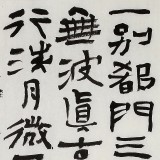 一别都門三
無波真古
行淡月微